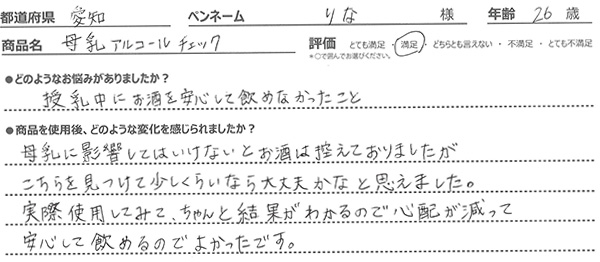 都道府県 愛知 ペンネーム りな 様 年齢 26 歳
商品名 母乳アルコールチェック 評価 とても満足 ・ 満足 ・ どちらとも言えない ・ 不満足 ・ とても不満足
*○で選んでお選びください。
●どのようなお悩みがありましたか？
授乳中にお酒を安心して飲めなかったこと
●商品を使用後、どのような変化を感じられましたか？
母乳に影響してはいけないとお酒は控えておりましたが
こちらを見つけて少しくらいなら大丈夫かなと思えました。
実際使用してみて、ちゃんと結果がわかるので心配が減って
安心して飲めるのでよかったです。